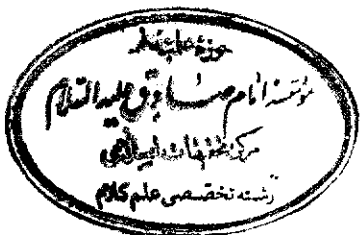 حوزه علمیه قم
مؤسسه امام صادق علیه السلام
مرکز تحقیقات اسلامی
رشته تخصصی علم کلام